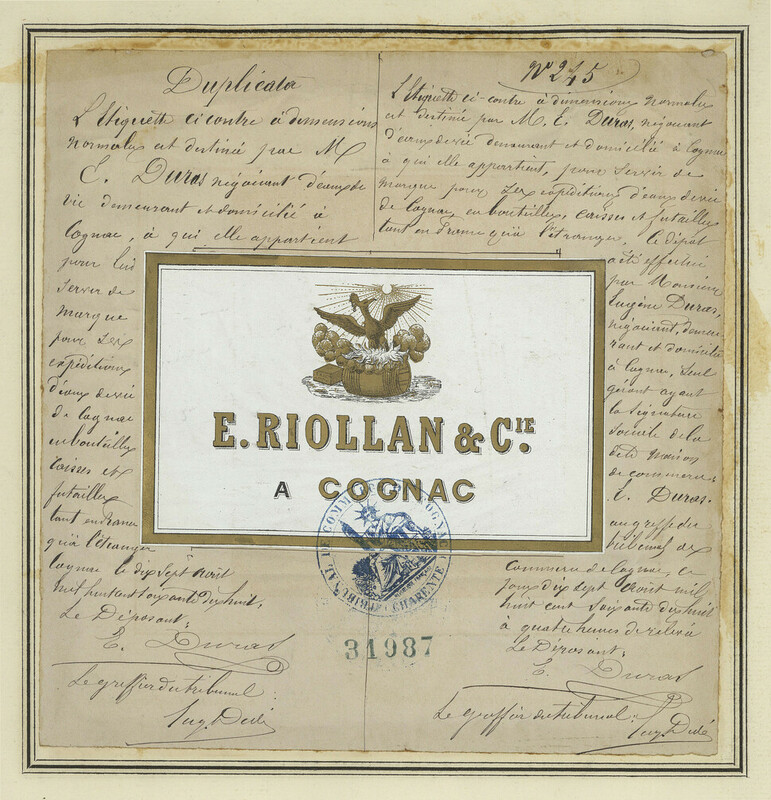 Duplicata
L'Etiquette ci contre à dimensions
normales est destinée par M
E. Duras négociant d'eaux de
vie demeurant et domicilié à
Cognac, à qui elle appartient
pour lui
servir de
marque
pour ses
expéditions
d'eaux de vie
de Cognac
en bouteilles
caisses et
futailles
tant en France
qu'à l'étranger
Cognac le dix sept Août
mil huit cent soixante dix huit,
Le Déposant,
E. Duras
Le greffier du tribunal:
Eug. Dedé
No 245
L'Etiquette ci-contre à dimensions normales
est destinée par M. E. Duras, négociant
d'eaux de vie demeurant et domicilié à Cognac
à qui elle appartient, pour servir de
marque pour ses expéditions d'eaux de vie
de Cognac en bouteilles, caisses et futailles
tant en France qu'à l'étranger. Le dépôt
a été effectué
par Monsieur
Eugène Duras,
négociant, demeu
rant et domicilié
à Cognac, seul
gérant ayant
la signature
sociale de la
dite maison
de commerce
E. Duras.
au greffe du
tribunal de
Commerce de Cognac, ce
jour dix sept Août mil
huit cent soixante dix huit
à quatre heures de relevée
Le Déposant:
E. Duras
Le greffier du tribunal:
Eug. Dedé
E. RIOLLAN & CIE.
A COGNAC
TRIBUNAL DE COMMERCE DE COGNAC
(CHARENTE)
31987